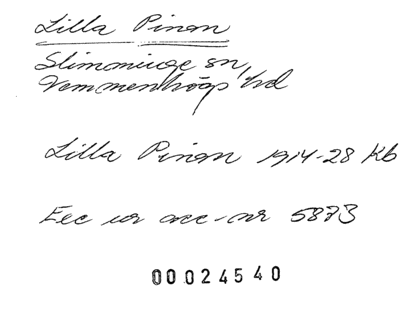 Lilla Pinan
Slimminge sn,
Vemmenhögs hd
Lilla Pinan 1914-28 Kb
Exc ur acc-nr 5873
00024540